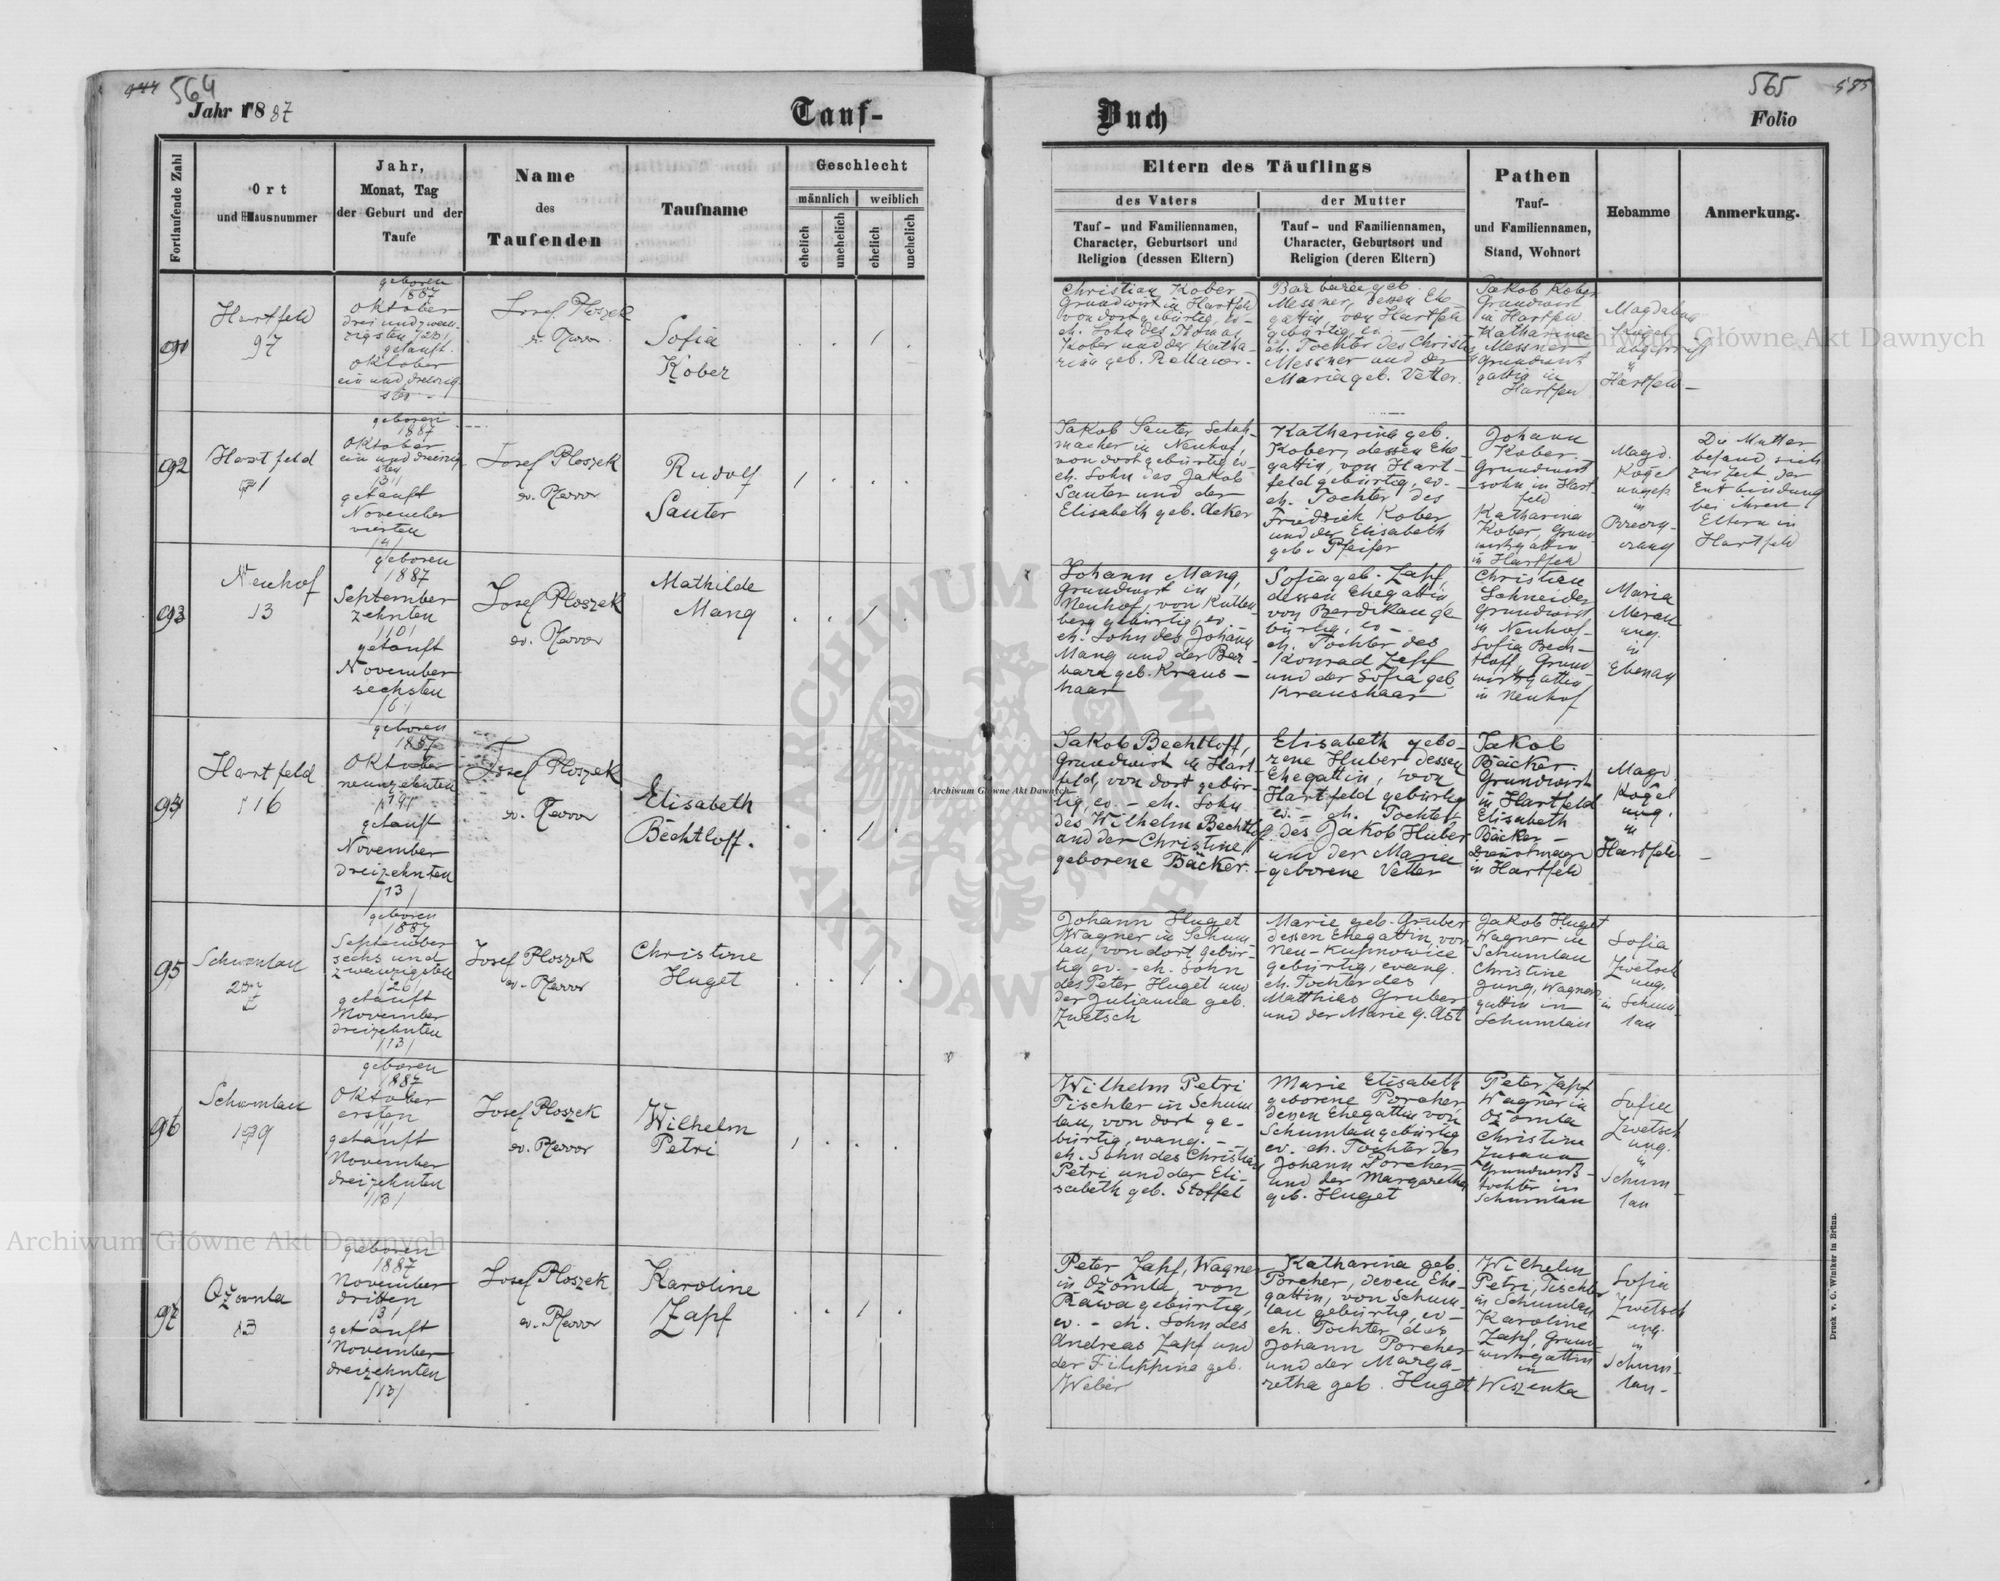 564
Jahr 1887
Tauf-
Fortlaufende Zahl
Ort
und Hausnummer
Jahr,
Monat, Tag
der Geburt und der
Taufe
Name
des
Taufenden
Taufname
Geschlecht
männlich
weiblich
ehelich
unehelich
ehelich
unehelich
Hartfeld
97
geboren
1887
Oktober
drei und zwan-
zigsten /23/
getauft
Oktober
ein und dreizig-
sten
Josef Ploszek
ev. Pfarrer
Sofia
Kober
92
Hartfeld
geboren
1887
Oktober
ein und dreizig
sten
/31/
getauft
November
vierten
/4/
Josef Ploszek
ev. Pfarrer
Rudolf
Sauter
93
Neuhof
13
geboren
1887
September
zehnten
/10/
getauft
November
sechsten
/6/
Josef Ploszek
ev. Pfarrer
Mathilde
Mang
94
Hartfeld
116
geboren
1887
Oktober
neunzehnten
/19/
getauft
November
dreizehnten
/13/
Josef Ploszek
ev. Pfarrer
Elisabeth
Bechtloff.
95
Schumlau
geboren
1887
September
sechs und
zwanzigsten
/26/
getauft
November
dreizehnten
/13/
Josef Ploszek
ev. Pfarrer
Christine
Huget
96
Schumlau
geboren
1887
Oktober
ersten
/1/
getauft
November
dreizehnten
/13/
Josef Ploszek
ev. Pfarrer
Wilhelm
Petri
97
Ożomla
13
geboren
1887
November
dritten
/3/
getauft
November
dreizehnten
/13/
Josef Ploszek
ev. Pfarrer
Karoline
Zapf
565
585
Buch
Folio
Eltern des Täuflings
des Vaters
Tauf- und Familiennamen,
Character, Geburtsort und
Religion (dessen Eltern)
der Mutter
Tauf- und Familiennamen,
Character, Geburtsort und
Religion (deren Eltern)
Pathen
Tauf-
und Familiennamen,
Stand, Wohnort
Hebamme
Anmerkung.
Christian Kober
Grundwirt in Hartfeld
von dort gebürtig, ev-
eh. Sohn des Thomas
Kober und der Katha-
rina geb.
Barbara geb.
Messner, dessen Ehe-
gattin, von Hartfeld
gebürtig, ev. -
eh. Tochter des Christ.
Messner und der
Maria geb. Vetter.
Jakob Kober
Grundwirt
in Hartfeld.
Katharina
Messner
Grundwirts
gattin in
Hartfeld
Magdalena
Kogel
ungeprüft
in
Hartfeld
Jakob Sauter Schuh-
macher in Neuhof,
von dort gebürtig ev-
eh. Sohn des Jakob
Sauter und der
Elisabeth geb. Acker
Katharina geb.
Kober, dessen Ehe-
gattin, von Hart-
feld gebürtig, ev. -
eh. Tochter des
Friedrich Kober
und der Elisabeth
geb. Pfeifer
Johann
Kober
Grundwirt
sohn in Hart-
feld
Katharina
Kober, Grund
wirtsgattin
in Hartfeld
Magd.
Kogel
ungep.
in
Die Mutter
befand sich
zur Zeit der
Entbindung
bei ihren
Eltern in
Hartfeld
Johann Mang,
Grundwirt in
Neuhof, von Kutten-
berg gebürtig, ev.
eh. Sohn des Johann
Mang und der Bar-
bara geb. Kraus-
haar
Sofia geb. Zapf,
dessen Ehegattin
von Berdikau ge
bürtig, ev -
eh. Tochter des
Konrad Zapf
und der Sofia geb.
Kraushaar
Christian
Schneider
Grundwirt
in Neuhof-
Sofia Bech-
tloff, Grund-
wirtsgattin
in Neuhof
Maria
ung.
in
Ebenau
Jakob Bechtloff,
Grundwirt in Hart-
feld, von dort gebür-
tig, ev. - eh. Sohn
des Wilhelm Bechtloff
und der Christine
geborene Bäcker.
Elisabeth gebo-
rene Huber dessen
Ehegattin, von
Hartfeld gebürtig
ev. - eh. Tochter
des Jakob Huber
und der Maria
geborene Vetter
Jakob
Bäcker
Grundwirt
in Hartfeld
Elisabeth
Bäcker
Dienstmagd
in Hartfeld
Magd.
Kogel
ung.
in
Hartfeld
Johann Huget
Wagner in Schum-
lau, von dort gebür-
tig ev. - eh. Sohn
des Peter Huget und
der Julianna geb.
Zwetsch
Marie geb. Gruber
dessen Ehegattin, von
Neu-Kuźnowice
gebürtig, evang.
eh. Tochter des
Matthias Gruber
und der Marie g. Ast
Jakob Huget
Wagner in
Schumlau
Christine
Jung, Wagners
gattin in
Schumlau
Sofia
Zwetsch
ung.
in Schum-
lau
Wilhelm Petri
Tischler in Schum
lau, von dort ge-
bürtig, evang. -
eh. Sohn des Christian
Petri und der Eli-
sabeth geb. Stoffel
Marie Elisabeth
geborene Porcher,
dessen Ehegattin von
Schumlau gebürtig
ev. eh. Tochter des
Johann Porcher
und der Margaretha
geb. Huget
Peter Zapf
Wagner in
Ożomla
Christine
Grundwirts-
tochter in
Schumlau
Sofia
Zwetsch
ung.
in
Schum-
lau
Peter Zapf, Wagner
in Ożomla, von
Rawa gebürtig,
ev. - eh. Sohn des
Andreas Zapf und
der Filippina geb.
Weber
Katharina geb.
Porcher, dessen Ehe-
gattin, von Schum-
lau gebürtig, ev-
eh. Tochter des
Johann Porcher
und der Marga-
retha geb. Huget
Wilhelm
Petri, Tischler
in Schumlau
Karoline
Zapf, Grund-
wirtsgattin
in
Wiszenka
Sofia
Zwetsch
ung.
in
Schum-
lau-
Druck v. C. Winiker in Brünn.
Archiwum Główne Akt Dawnych
Archiwum Główne Akt Dawnych
Archiwum Główne Akt Dawnych
ARCHIWUM GŁÓWNE AKT DAWNYCH